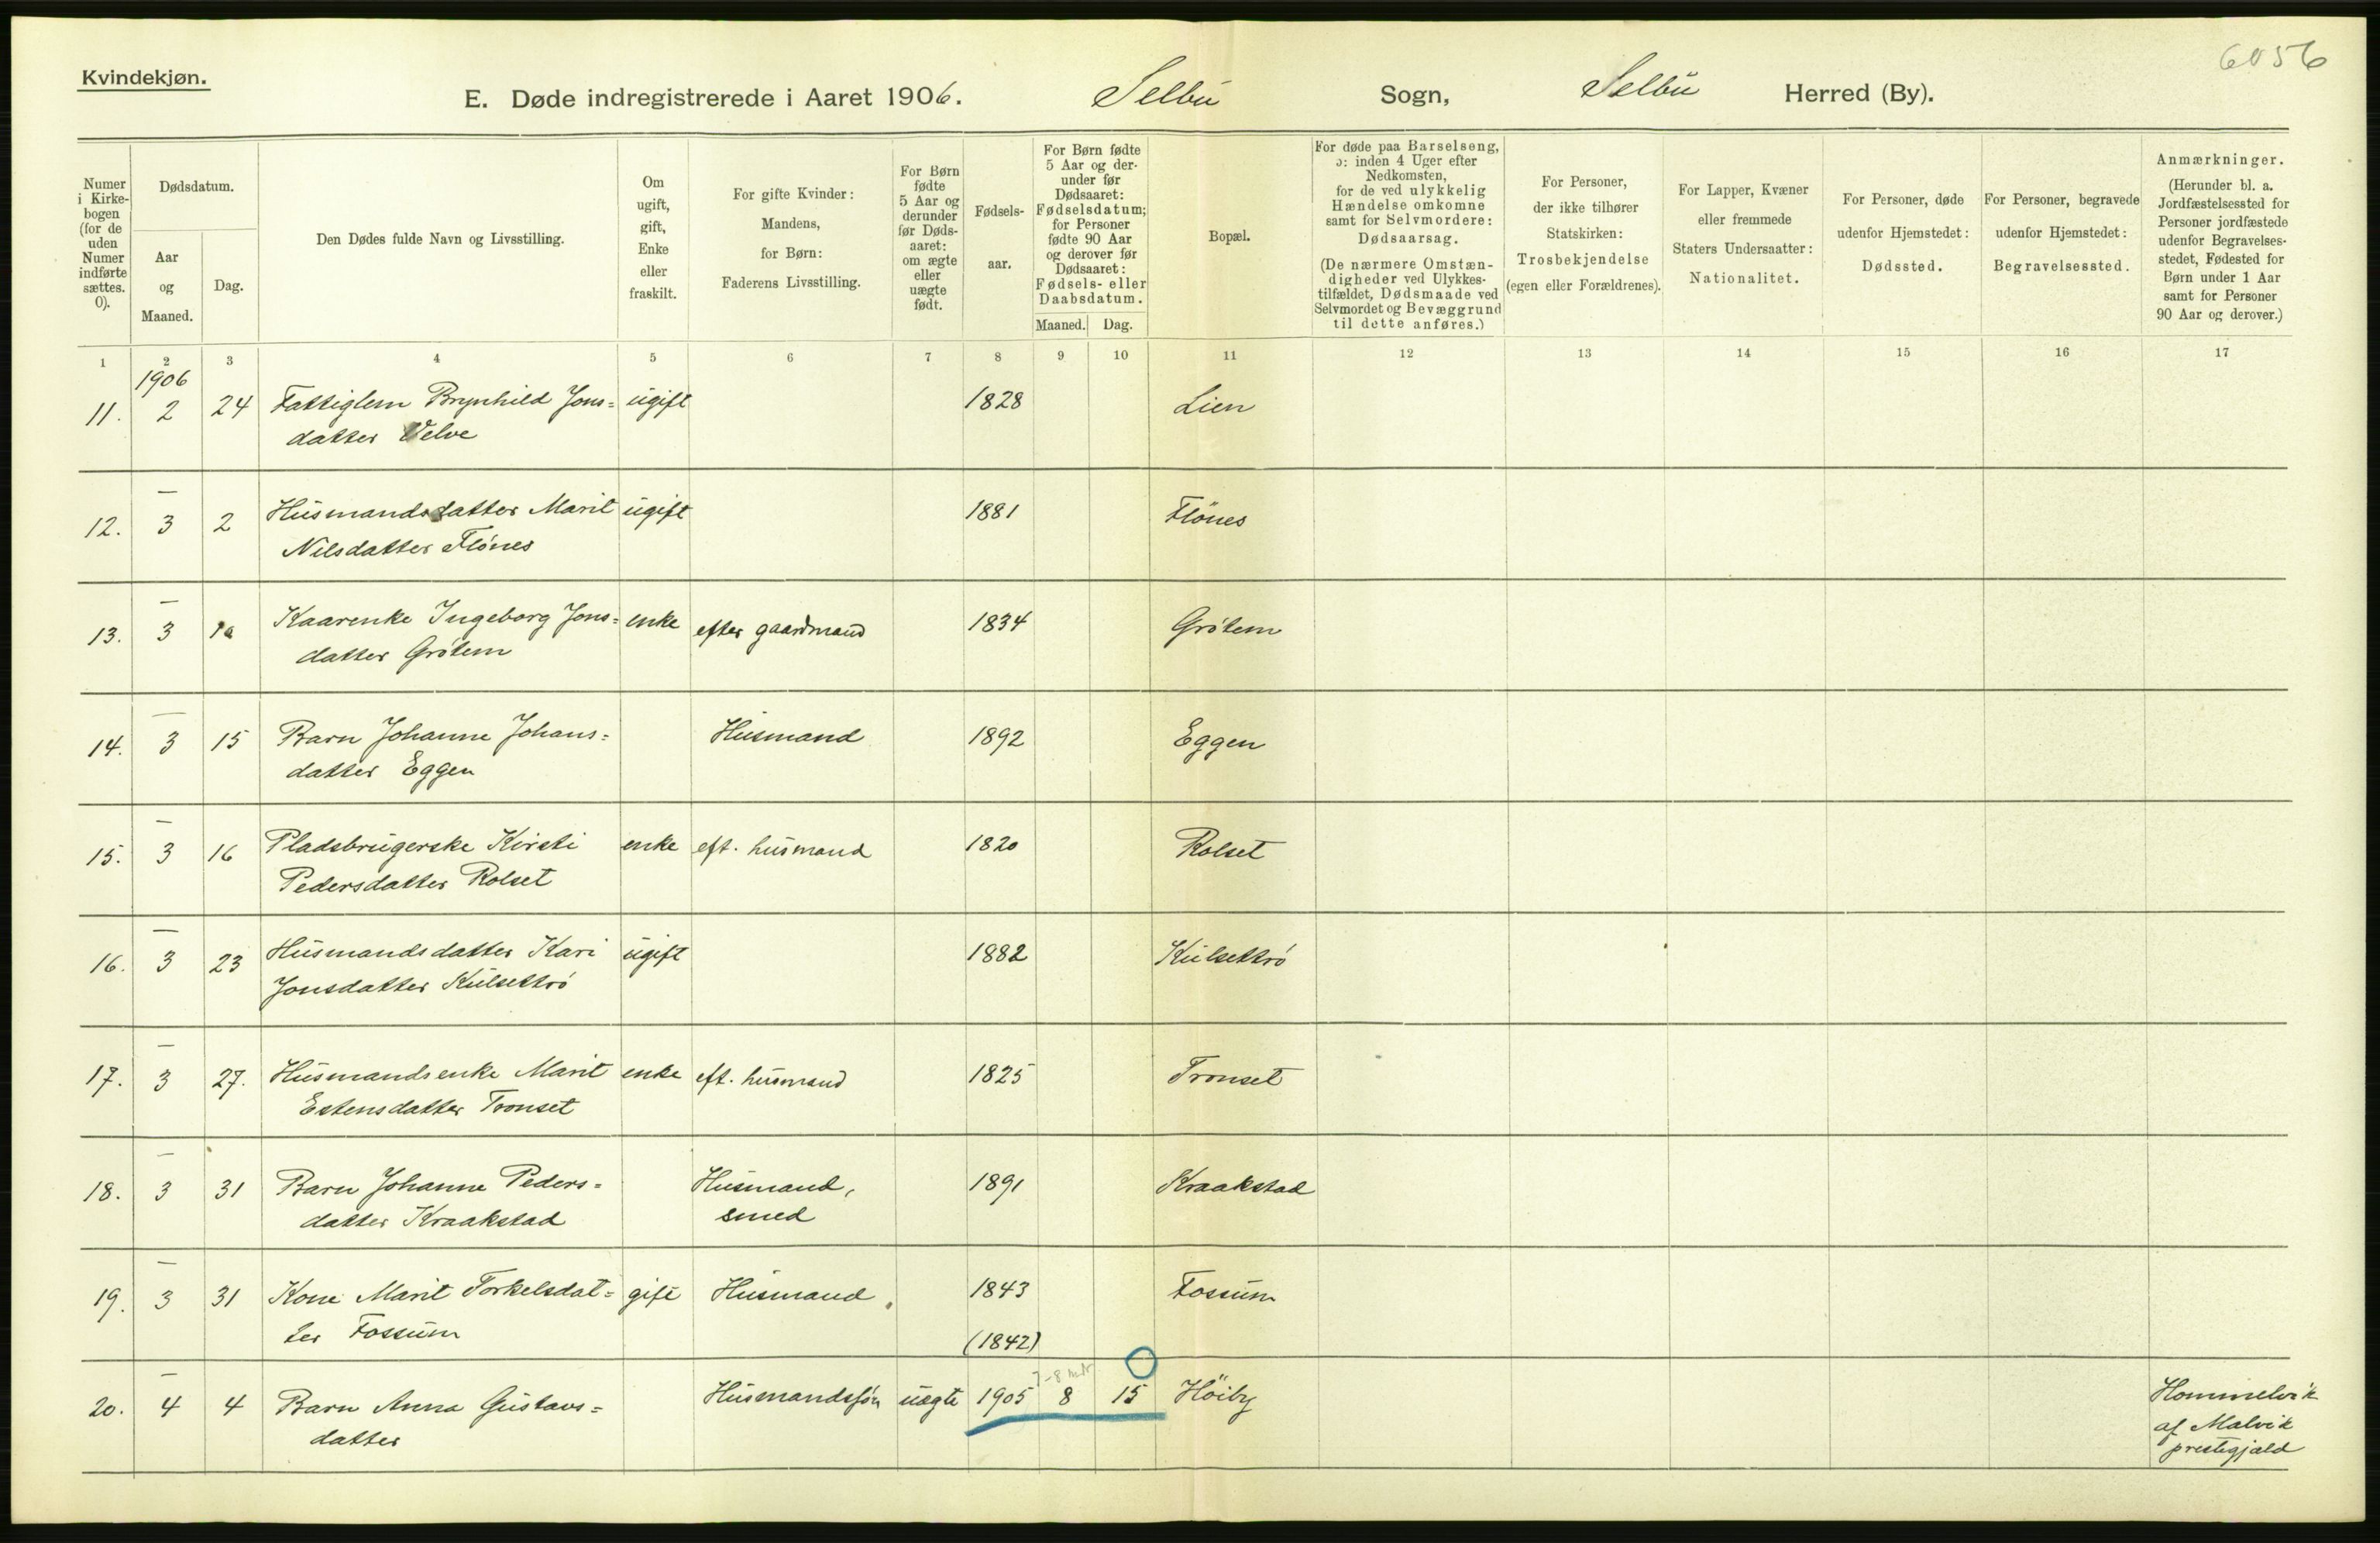 6056
Kvindekjøn.
E. Døde indregistrerede i Aaret 1906. Selbu Sogn, Selbu Herred (By).
Numer
i Kirke-
bogen
(for de
uden
Numer
indførte
sættes.
0).
Dødsdatum.
Aar
og
Maaned.
Dag.
Den Dødes fulde Navn og Livsstilling.
Om
ugift,
gift,
Enke
eller
fraskilt.
For gifte Kvinder:
Mandens,
for Børn:
Faderens Livsstilling.
For Børn
fødte
5 Aar og
derunder
før Døds-
aaret:
om ægte
eller
uægte
født.
Fødsels-
aar.
For Børn fødte
5 Aar og der-
under før
Dødsaaret:
Fødselsdatum;
for Personer
fødte 90 Aar
og derover før
Dødsaaret:
Fødsels- eller
Daabsdatum.
Maaned. Dag.
Bopæl.
For døde paa Barselseng,
ɔ: inden 4 Uger efter
Nedkomsten,
for de ved ulykkelig
Hændelse omkomne
samt for Selvmordere:
Dødsaarsag.
(De nærmere Omstæn-
digheder ved Ulykkes-
tilfældet, Dødsmaade ved
Selvmordet og Bevæggrund
til dette anføres.)
For Personer,
der ikke tilhører
Statskirken:
Trosbekjendelse
(egen eller Forældrenes).
For Lapper, Kvæner
eller fremmede
Staters Undersaatter:
Nationalitet.
For Personer, døde
udenfor Hjemstedet:
Dødssted.
For Personer, begravede
udenfor Hjemstedet:
Begravelsessted.
Anmærkninger.
(Herunder bl. a.
Jordfæstelsessted for
Personer jordfæstede
udenfor Begravelses-
stedet, Fødested for
Børn under 1 Aar
samt for Personer
90 Aar og derover.)
1 2 3 4 5 6 7 8 9 10 11 12 13 14 15 16 17
1906
11. 2 24 Fattiglem Brynhild Jons= ugift 1828 Lien
datter Velve
—
12. 3 2 Husmandsdatter Marit ugift 1881 Flönes
Nilsdatter Flónes
—
13. 3 Kaarenke Ingeborg Jons= enke efter gaardmand 1834 Grótem
datter Grótem
—
14. 3 15 Barn Johanne Johans= Husmand 1892 Eggen
datter Eggen
—
15. 3 16 Pladsbrugerske Kirsti enke eft. husmand 1820 Rolset
Pedersdatter Rolset
—
16. 3 23 Husmandsdatter Kari ugift 1882 Kulsettró
Jonsdatter Kulsettró
—
17. 3 27. Husmandsenke Marit enke eft. husmand 1825 Tronset
Estensdatter Tronset
—
18. 3 31 Barn Johanne Peders= Husmand, 1891 Kraakstad
datter Kraakstad smed
—
19. 3 31 Kone Marit Torkelsdat= gift Husmand 1843 Fossum
ter Fossum (1842)
—
7-8 mdr
20. 4 4 Barn Anna Gustavs= Husmandssón uægte 1905 8 15 Höiby Hommelvik
datter af Malvik
prestegjæld